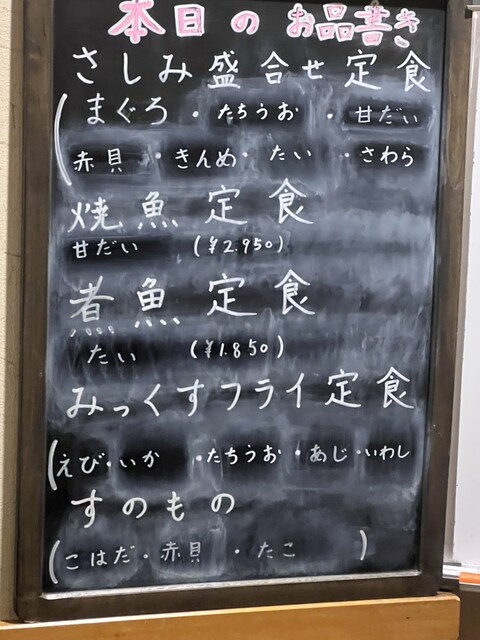 本日のお品書き
さしみ盛合せ定食
(まぐろ・たちうお・甘だい
赤貝・きんめ・たい・さわら
焼魚定食
甘だい (¥2.950)
煮魚定食
たい (¥1.850)
みっくすフライ定食
(えび・いか・たちうお・あじ・いわし
すのもの
(こはだ・赤貝・たこ)